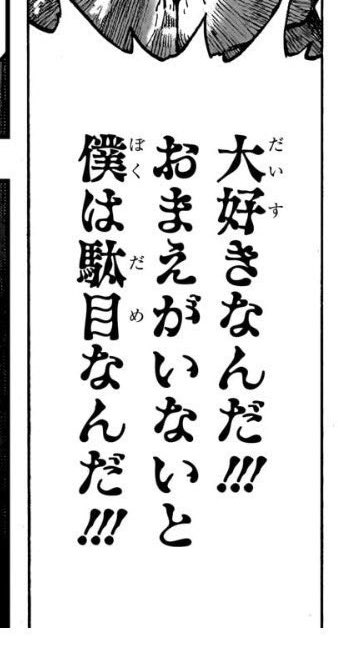 大好きなんだ!!!
おまえがいないと
僕は駄目なんだ!!!